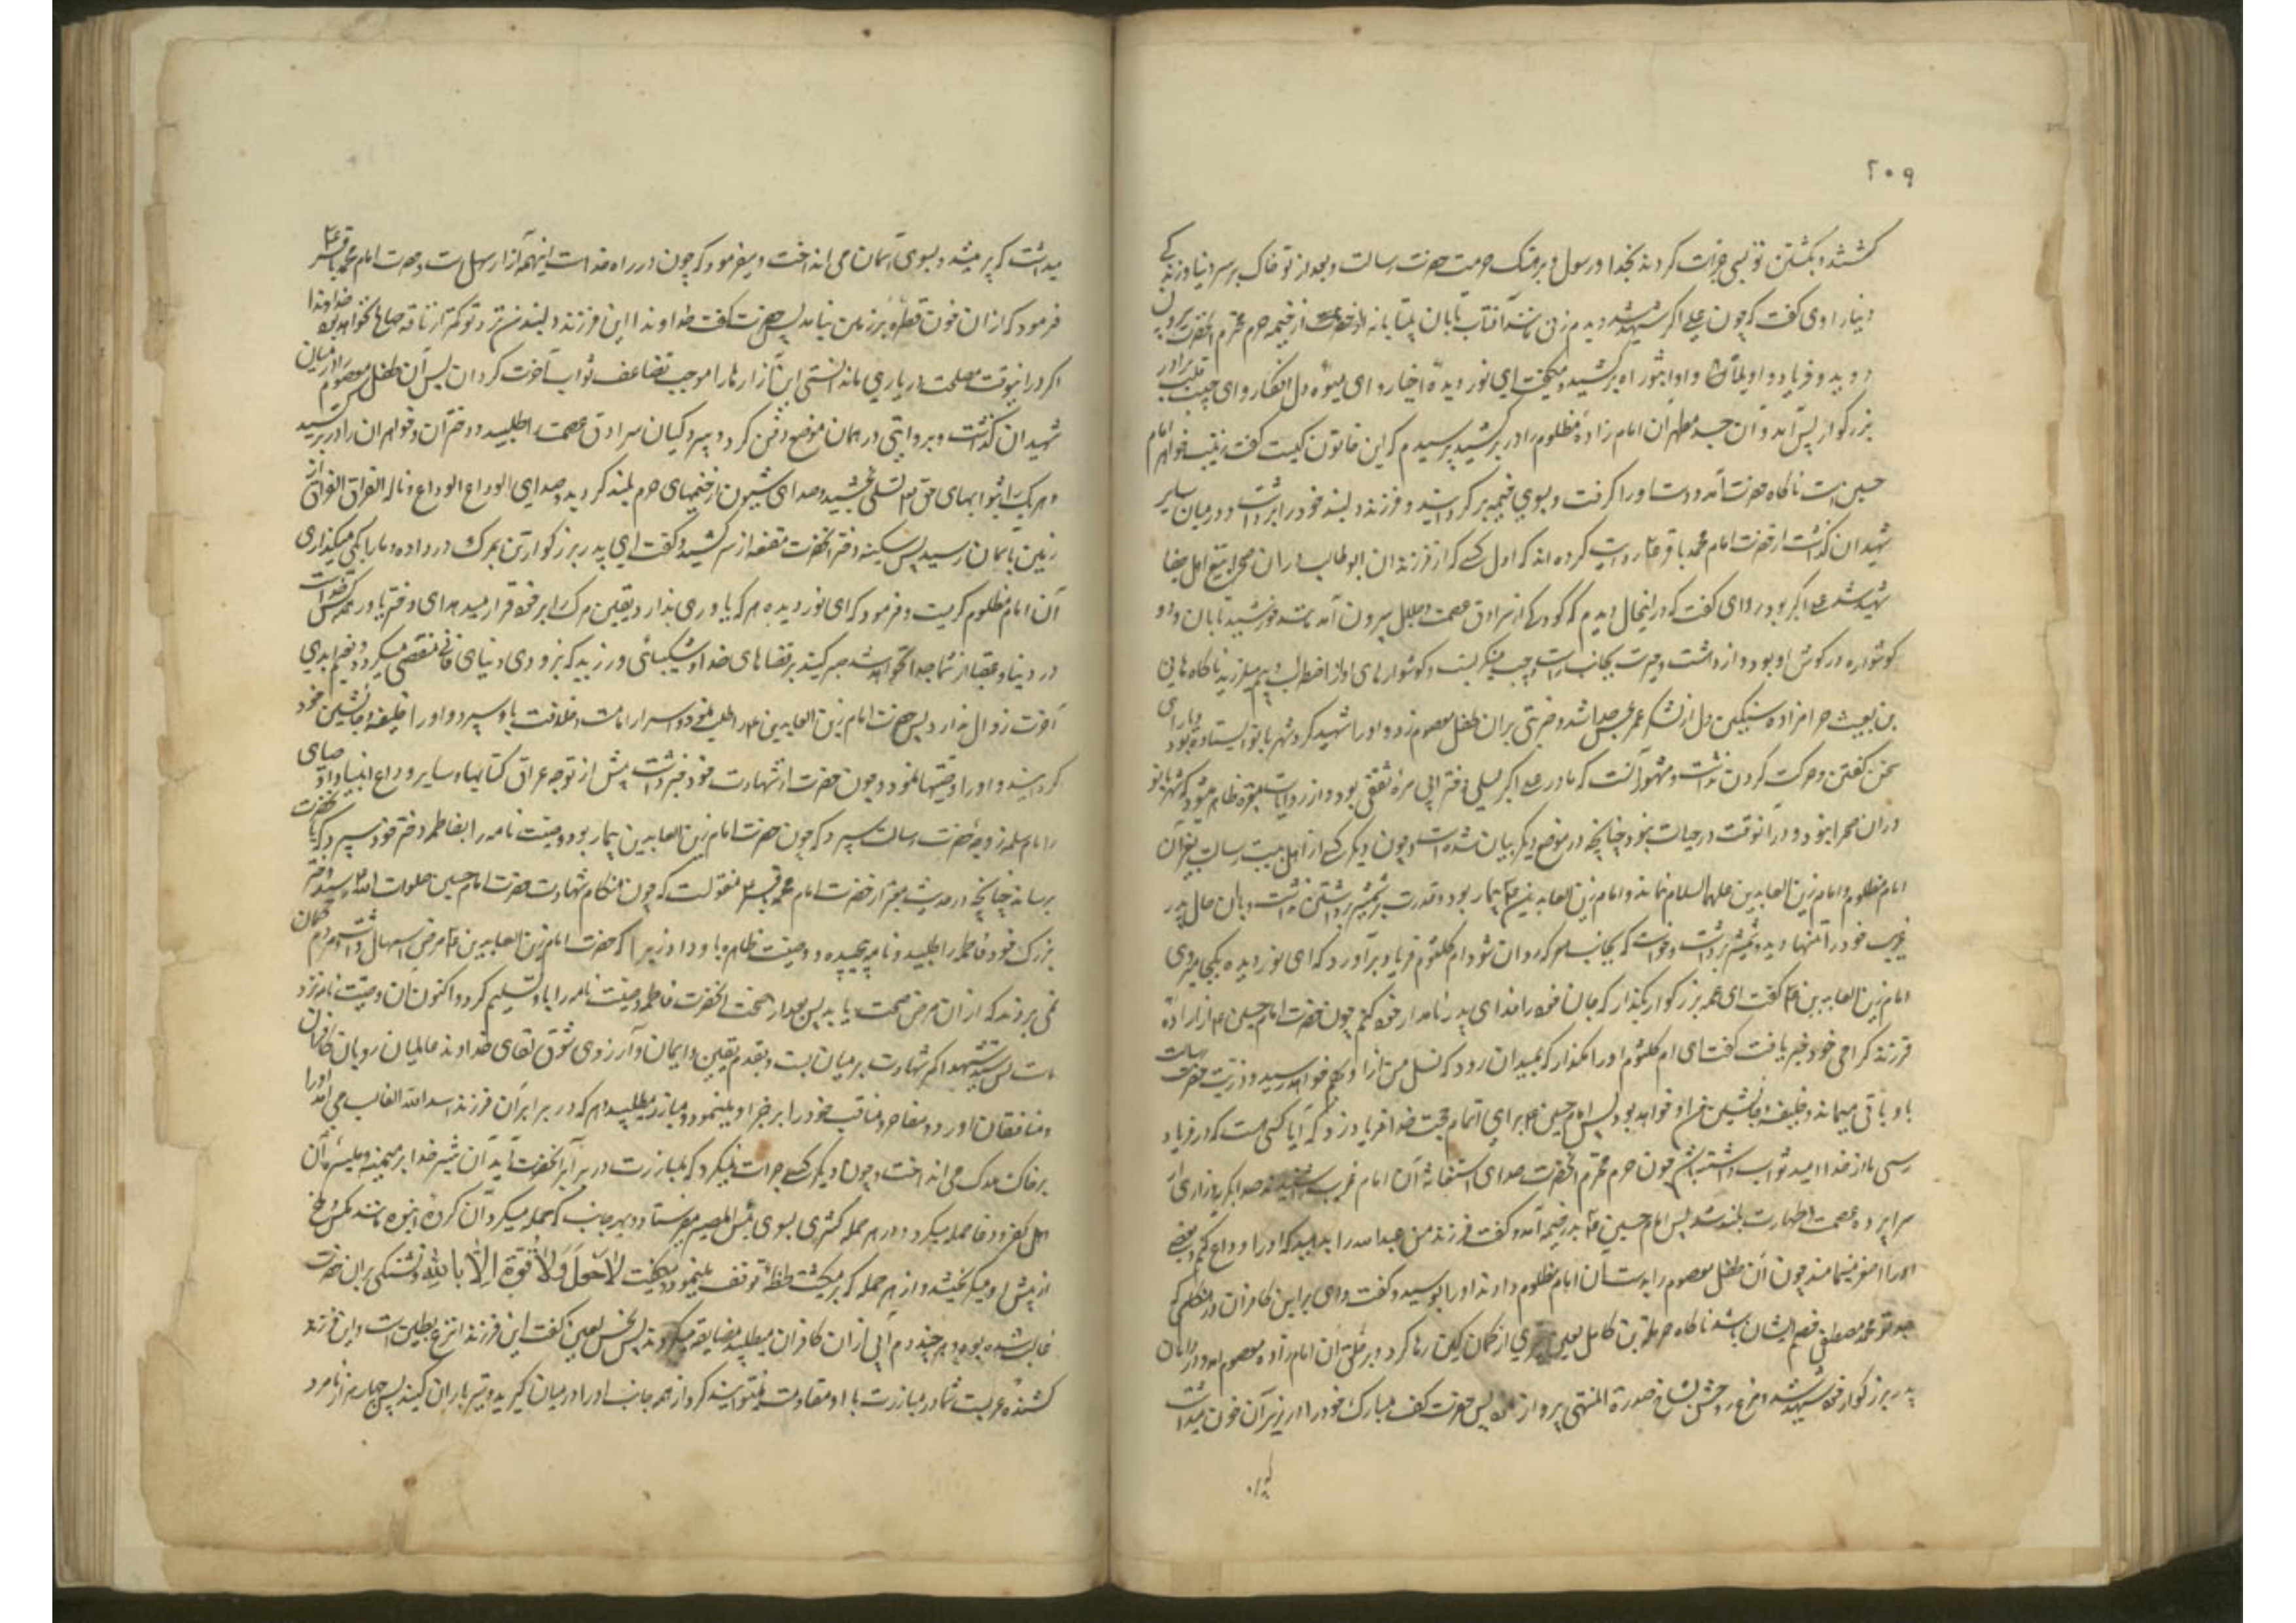 ۲۰۹
کشتند و بکشتن تو بسی جرات کردند بخدا و رسول و بر هتک حرمت حضرت رسالت و بعد از تو خاک بر سر دنیا و زندکی
دنیا راوی کفت که چون علی اکبر شهید شد دیدم زنی مانند آفتاب تابان بیتابانه از خیمه حرم محترم آنحضرت بیرون
دوید و فریاد واویلاه و واثبوراه بر کشید و میکفت ای نور دیده اخیار و ای میوه دل افکار و ای حبیب قلب برادر
بزرکوار پس آمد و آن جسد مطهر آن امام زاده مظلوم را در بر کشید پرسیدم که این خاتون کیست کفتند زینب خواهر امام
حسین است ناکاه حضرت آمد و دست او را کرفت و بسوی خیمه بر کردانید و فرزند دلبند خود را برداشت و در میان سایر
شهیدان کذاشت از حضرت امام محمد باقر ع روایت کرده اند که اول کسی که از فرزندان ابو طالب در ان صحرا بتیغ اهل جفا
شهید شد علی اکبر بود راوی کفت که در انحال دیدم که کودکی از سرادق عصمت و جلال بیرون آمد مانند خورشید تابان و دو
کوشواره در کوش او بود و از دهشت و حیرت بجانب راست و چپ مینکریست و کوشوارهای او از اضطراب و بیم میلرزید ناکاه هانی
بن بعیث حرامزاده سنکین دل از لشکر عمر نحس جدا شد و ضربتی بران طفل معصوم زد و او را شهید کرد و شهربانو ایستاده بود و یارای
سخن کفتن و حرکت کردن نداشت و مشهور آنست که مادر علی اکبر لیلی دختر ابی مره ثقفی بود و از روایات معتبره ظاهر میشود که شهربانو
دران صحرا نبود و در آنوقت در حیات نبود چنانچه در موضع دیکر بیان شده است و چون دیکر کسی از اهل بیت رسالت بغیر آن
امام مظلوم و امام زین العابدین علیهما السلام نماند و امام زین العابدین ع بیمار بود و قدرت بر شمشیر برداشتن نداشت و بان حال پدر
غریب خود را تنها دید و شمشیر برداشت و خواست که بجانب معرکه روان شود ام کلثوم فریاد بر آورد که ای نور دیده بکجا میروی
امام زین العابدین ع کفت ای عمه بزرکوار بکذار که جان خود را فدای پدر نامدار خود کنم چون حضرت امام حسین ع از اراده
فرزند کرامی خود خبر یافت کفت ای ام کلثوم او را مکذار که بمیدان رود که نسل من از او بهم خواهد رسید و ذریت حضرت رسالت
باو باقی میماند و خلیفه و جانشین من او خواهد بود پس امام حسین ع برای اتمام حجت خدا فریاد زد که آیا کسی هست که در فریاد
رسی ما از خدا امید ثواب داشته باشد چون حرم محترم آنحضرت صدای استغاثه آن امام غریب شنیدند صدا بکریه و زاری از
سراپرده عصمت و طهارت بلند شد پس امام حسین ع بدر خیمه آمد و کفت فرزند من عبدالله را بدهید که او را وداع کنم و بعضی
او را اصغر مینامند چون آن طفل معصوم را بدست آن امام مظلوم دادند او را بوسید و کفت وای بر این کافران در هنکامی که
جد تو محمد مصطفی خصم ایشان باشد ناکاه حرملة بن کامل لعین تیری از کمان کین رها کرد و بر حلق آن امام زاده معصوم آمد و در دامان
پدر بزرکوار خود شهید شد و مرغ روحش بشاخ سدرة المنتهی پرواز نمود پس حضرت کف مبارک خود را در زیر آن خون میداشت
میداشت که پر میشد و بسوی آسمان می انداخت و میفرمود که چون در راه خداست اینهمه آزار سهل است و حضرت امام محمد باقر ع
فرمود که ازان خون قطره بر زمین نیامد پس حضرت کفت خداوندا این فرزند دلبند من نزد تو کمتر از ناقه صالح نخواهد بود خداوندا
اکر در اینوقت مصلحت در یاری ما ندانستی این آزارها را موجب تضاعف ثواب آخرت کردان پس آن طفل معصوم را در میان
شهیدان کذاشت و بروایتی در همان موضع دفن کرد و پس پردکیان سرادق عصمت را طلبید و دختران و خواهران را در بر کشید
و هر یک را بثوابهای حق تع تسلی بخشید و صدای شیون از خیمهای حرم بلند کردید و صدای الوداع الوداع و ناله الفراق الفراق از
زمین بآسمان رسید پس سکینه دختر آنحضرت مقنعه از سر کشید و کفت ای پدر بزرکوار تن بمرک در داده و ما را بکی میکذاری
آن امام مظلوم کریست و فرمود که ای نور دیده هر که یاوری ندارد یقین مرک را بر خود قرار میدهد ای دختر یاور همه کس خداست
در دنیا و عقبا از شما جدا نخواهد شد صبر کنید بر قضاهای خدا و شکیبائی ورزید که بزودی دنیای فانی منقضی میکردد و نعیم ابدی
آخرت زوال ندارد پس حضرت امام زین العابدین ع را طلبید و اسرار امامت و خلافت باو سپرد و او را خلیفه و جانشین خود
کردانید و او را وصیتها نمود و چون حضرت از شهادت خود خبر داشت پیش از توجه عراق کتابها و سایر ودایع انبیا و اوصیای
را بام سلمه زوجه حضرت رسالت سپرد که چون حضرت امام زین العابدین بیمار بود وصیت نامه را بفاطمه دختر خود سپرد که بآنحضرت
برساند چنانچه در حدیث معتبر از حضرت امام محمد باقر ع منقولست که چون هنکام شهادت حضرت امام حسین صلوات الله علیه رسید دختر
بزرک خود فاطمه را طلبید و نامه پیچیده و وصیت ظاهره باو داد زیرا که حضرت امام زین العابدین ع مرض اسهال داشت و مردم کمان
نمی بردند که از ان مرض صحت یابد پس بعد از صحت آنحضرت فاطمه وصیت نامه را باو تسلیم کرد و اکنون آن وصیت نامه نزد
ماست پس سید شهدا کمر شهادت بر میان بست و بقدم یقین و ایمان و آرزوی شوق لقای خداوند عالمیان رو بان کافران
و منافقان آورد و مفاخر و مناقب خود را بر خبر او مینمود و مبارز میطلبید هر که در برابر آن فرزند اسد الله الغالب می آمد او را
بر خاک هلاک می انداخت و چون دیکر کسی جرات نمیکرد که بمبارزت در برابر آنحضرت آید آن شیر خدا بر میمنه و میسره آن
اهل کفر و دغا حمله میکرد و در هر حمله کثیری بسوی بئس المصیر میفرستاد و بهر جانب که حمله میکرد آن کروه انبوه مانند مکس و ملخ
از پیش او میکریختند و از هر حمله که بر میکشت لحظه توقف مینمود و میکفت لا حول و لا قوة الا بالله و تشنکی بران حضرت
غالب شده بود و هر چند دم آبی ازان کافران میطلبید مضایقه میکردند پس نحس لعین کفت این فرزند انزع بطین است و این فرزند
کشنده عربست شما در مبارزت با او مقاومت نمیتوانید کرد از همه جانب او را در میان کیرید و تیر باران کنید پس چهار هزار نامرد